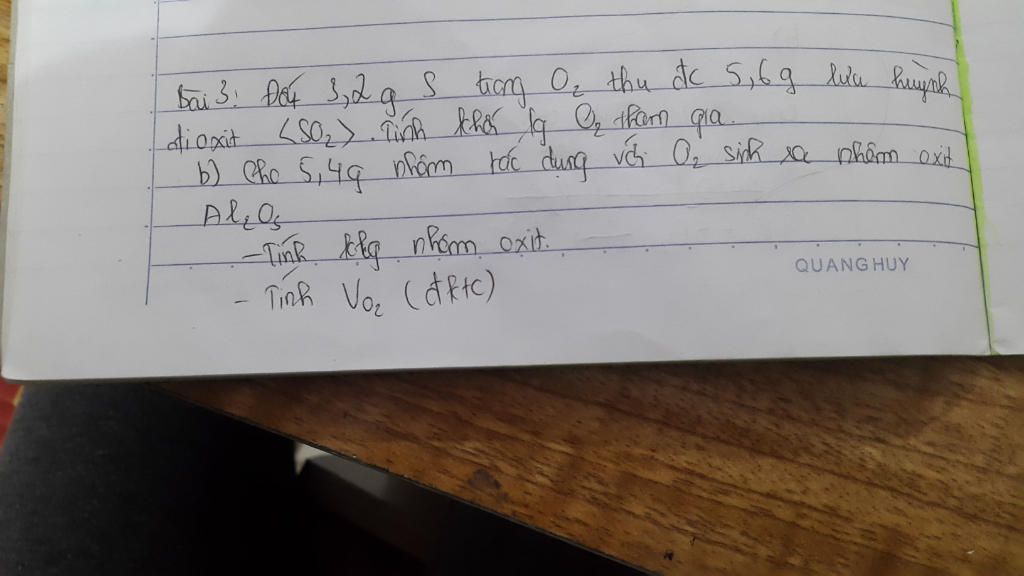 Bài 3: Đốt 3,2 g S trong O₂ thu đc 5,6 g lưu huỳnh
đioxit <SO₂>. Tính khối lg O₂ tham gia.
b) Cho 5,4g nhôm tác dụng với O₂ sinh ra nhôm oxit
Al₂O₃
- Tính klg nhôm oxit.
QUANG HUY
- Tính VO₂ (đktc)